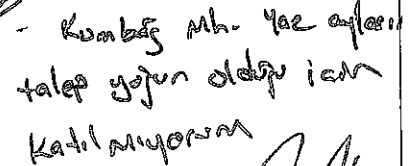 - Kumbağ Mh. Yaz ayları
talep yoğun olduğu için
Katılmıyorum